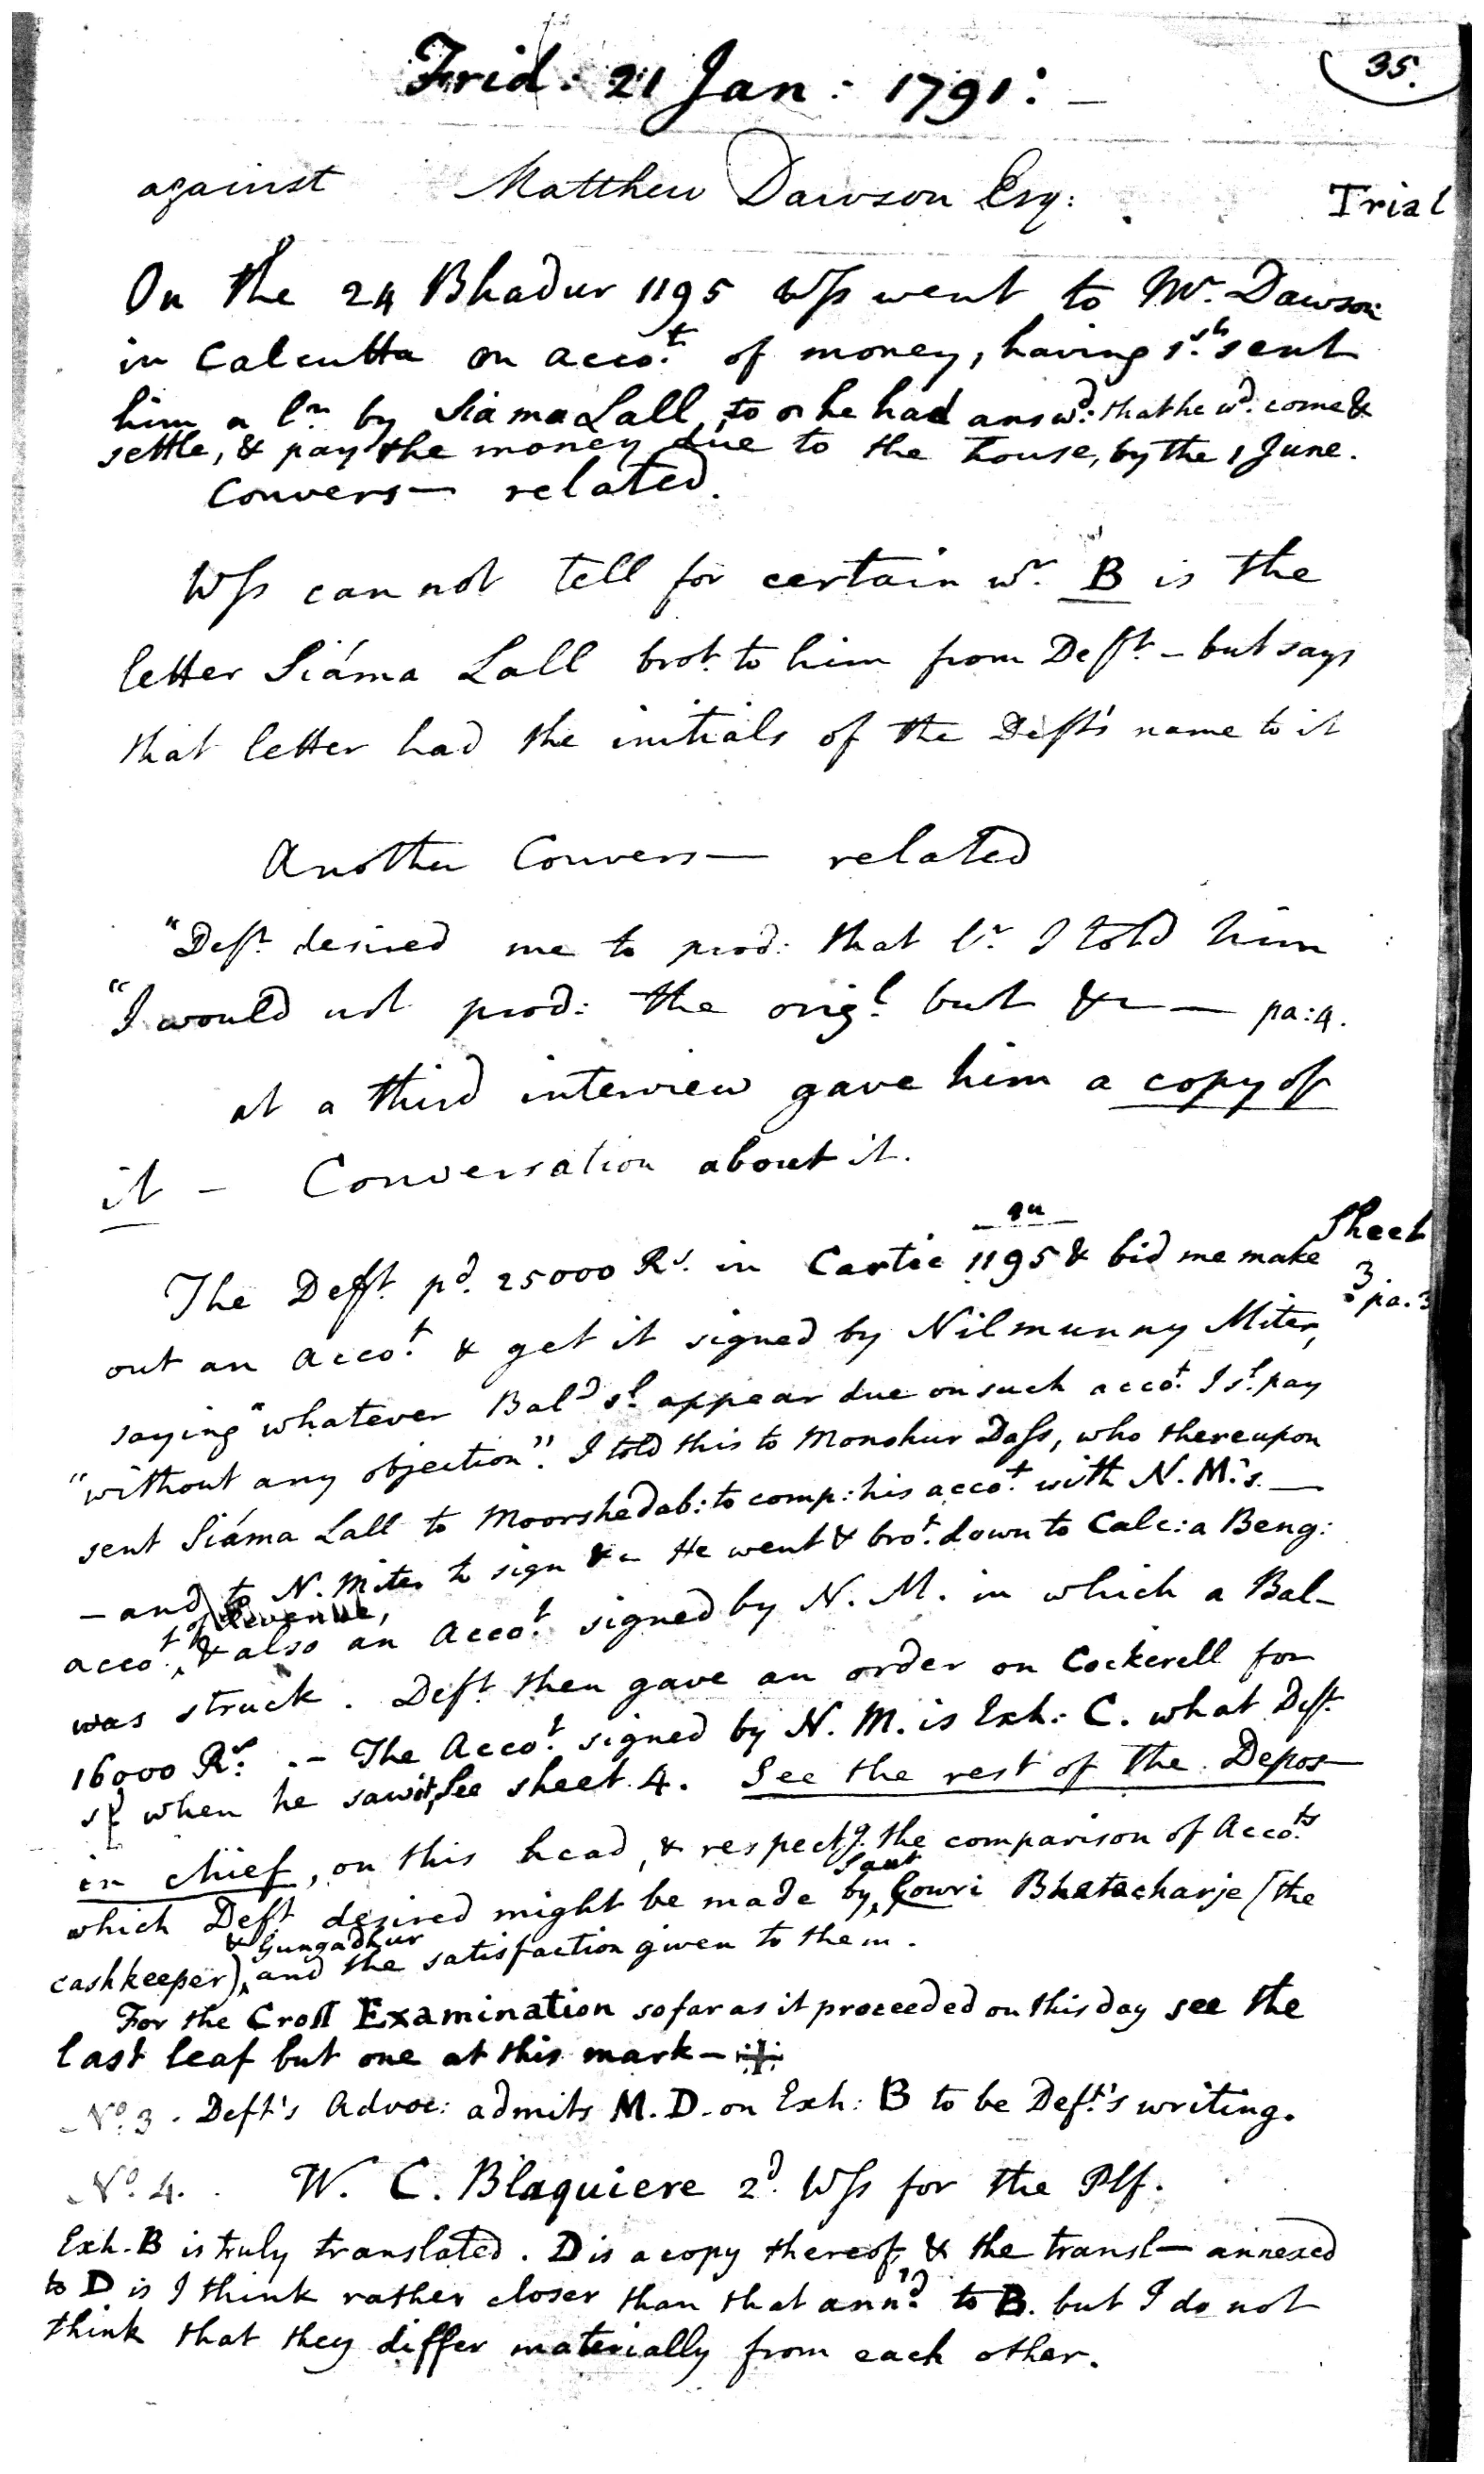 Frid: 21 Jan: 1791: —
35.
against Matthew Dawson Esq:
Trial
On the 24 Bhadur 1195 Wss went to Mr. Dawson
in Calcutta on accot. of money, having 1st sent
him a lr. by Siama Lall, to he had answd: that he wd. come &
settle, & pay the money due to the house, by the 1 June.
Convers— related.
Wss can not tell for certain wr. B is the
letter Siáma Lall brot. to him from Deft. — but says
that letter had the initials of the Deft's name to it
Another Convers— related
"Deft. desired me to prod: that lr. I told him
"I would not prod: the origl. but &c — pa: 4.
at a third interview gave him a copy of
it — Conversation about it.
Sheet
3.
pa. 3
The Deft. pd. 25000 Rs. in Cartic 1195 & bid me make
out an accot. & get it signed by Nilmunny Miter,
saying "whatever Bald sd. appear due on such accot. I sd. pay
"without any objection". I told this to Monohur Dass, who thereupon
sent Siáma Lall to Moorshedab: to comp: his accot. with N. M.'s. —
— and to N. Miter to sign &c He went & brot. down to Calc: a Beng:
accot. of Revenue, & also an Accot. signed by N. M. in which a Bal—
was struck. Deft. then gave an order on Cockerell for
16000 Rs. — The Accot. signed by N. M. is Exh: C. what Deft.
sd. when he saw it, See sheet 4. See the rest of the Depos—
in chief, on this head, & respectg. the comparison of Accots.
which Deft. desired might be made by Gowri Bhatacharje (the
cashkeeper) & Gungadhur and the satisfaction given to them.
For the Cross Examination so far as it proceeded on this day see the
last leaf but one at this mark —
No. 3. Deft's Advoc: admits M. D. on Exh: B to be Deft.'s writing.
No. 4. W. C. Blaquiere 2d. Wss for the Plf.
Exh. B is truly translated. D is a copy thereof, & the transl— annexed
to D is I think rather closer than that annd. to B. but I do not
think that they differ materially from each other.